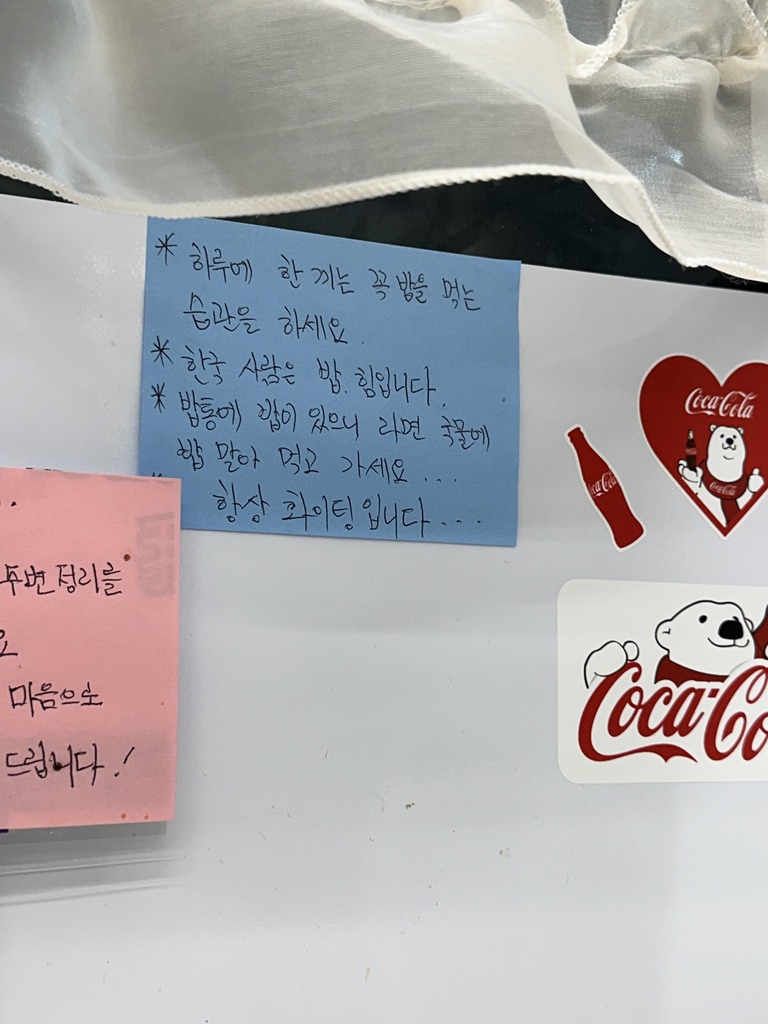 * 하루에 한 끼는 꼭 밥을 먹는
습관을 하세요.
* 한국 사람은 밥.힘입니다.
* 밥통에 밥이 있으니 라면 국물에
밥 말아 먹고 가세요...
항상 화이팅입니다...
주변정리를
요
마음으로
드립니다!
Coca-Cola
Coca-Cola
Coca-Cola
Coca-Co